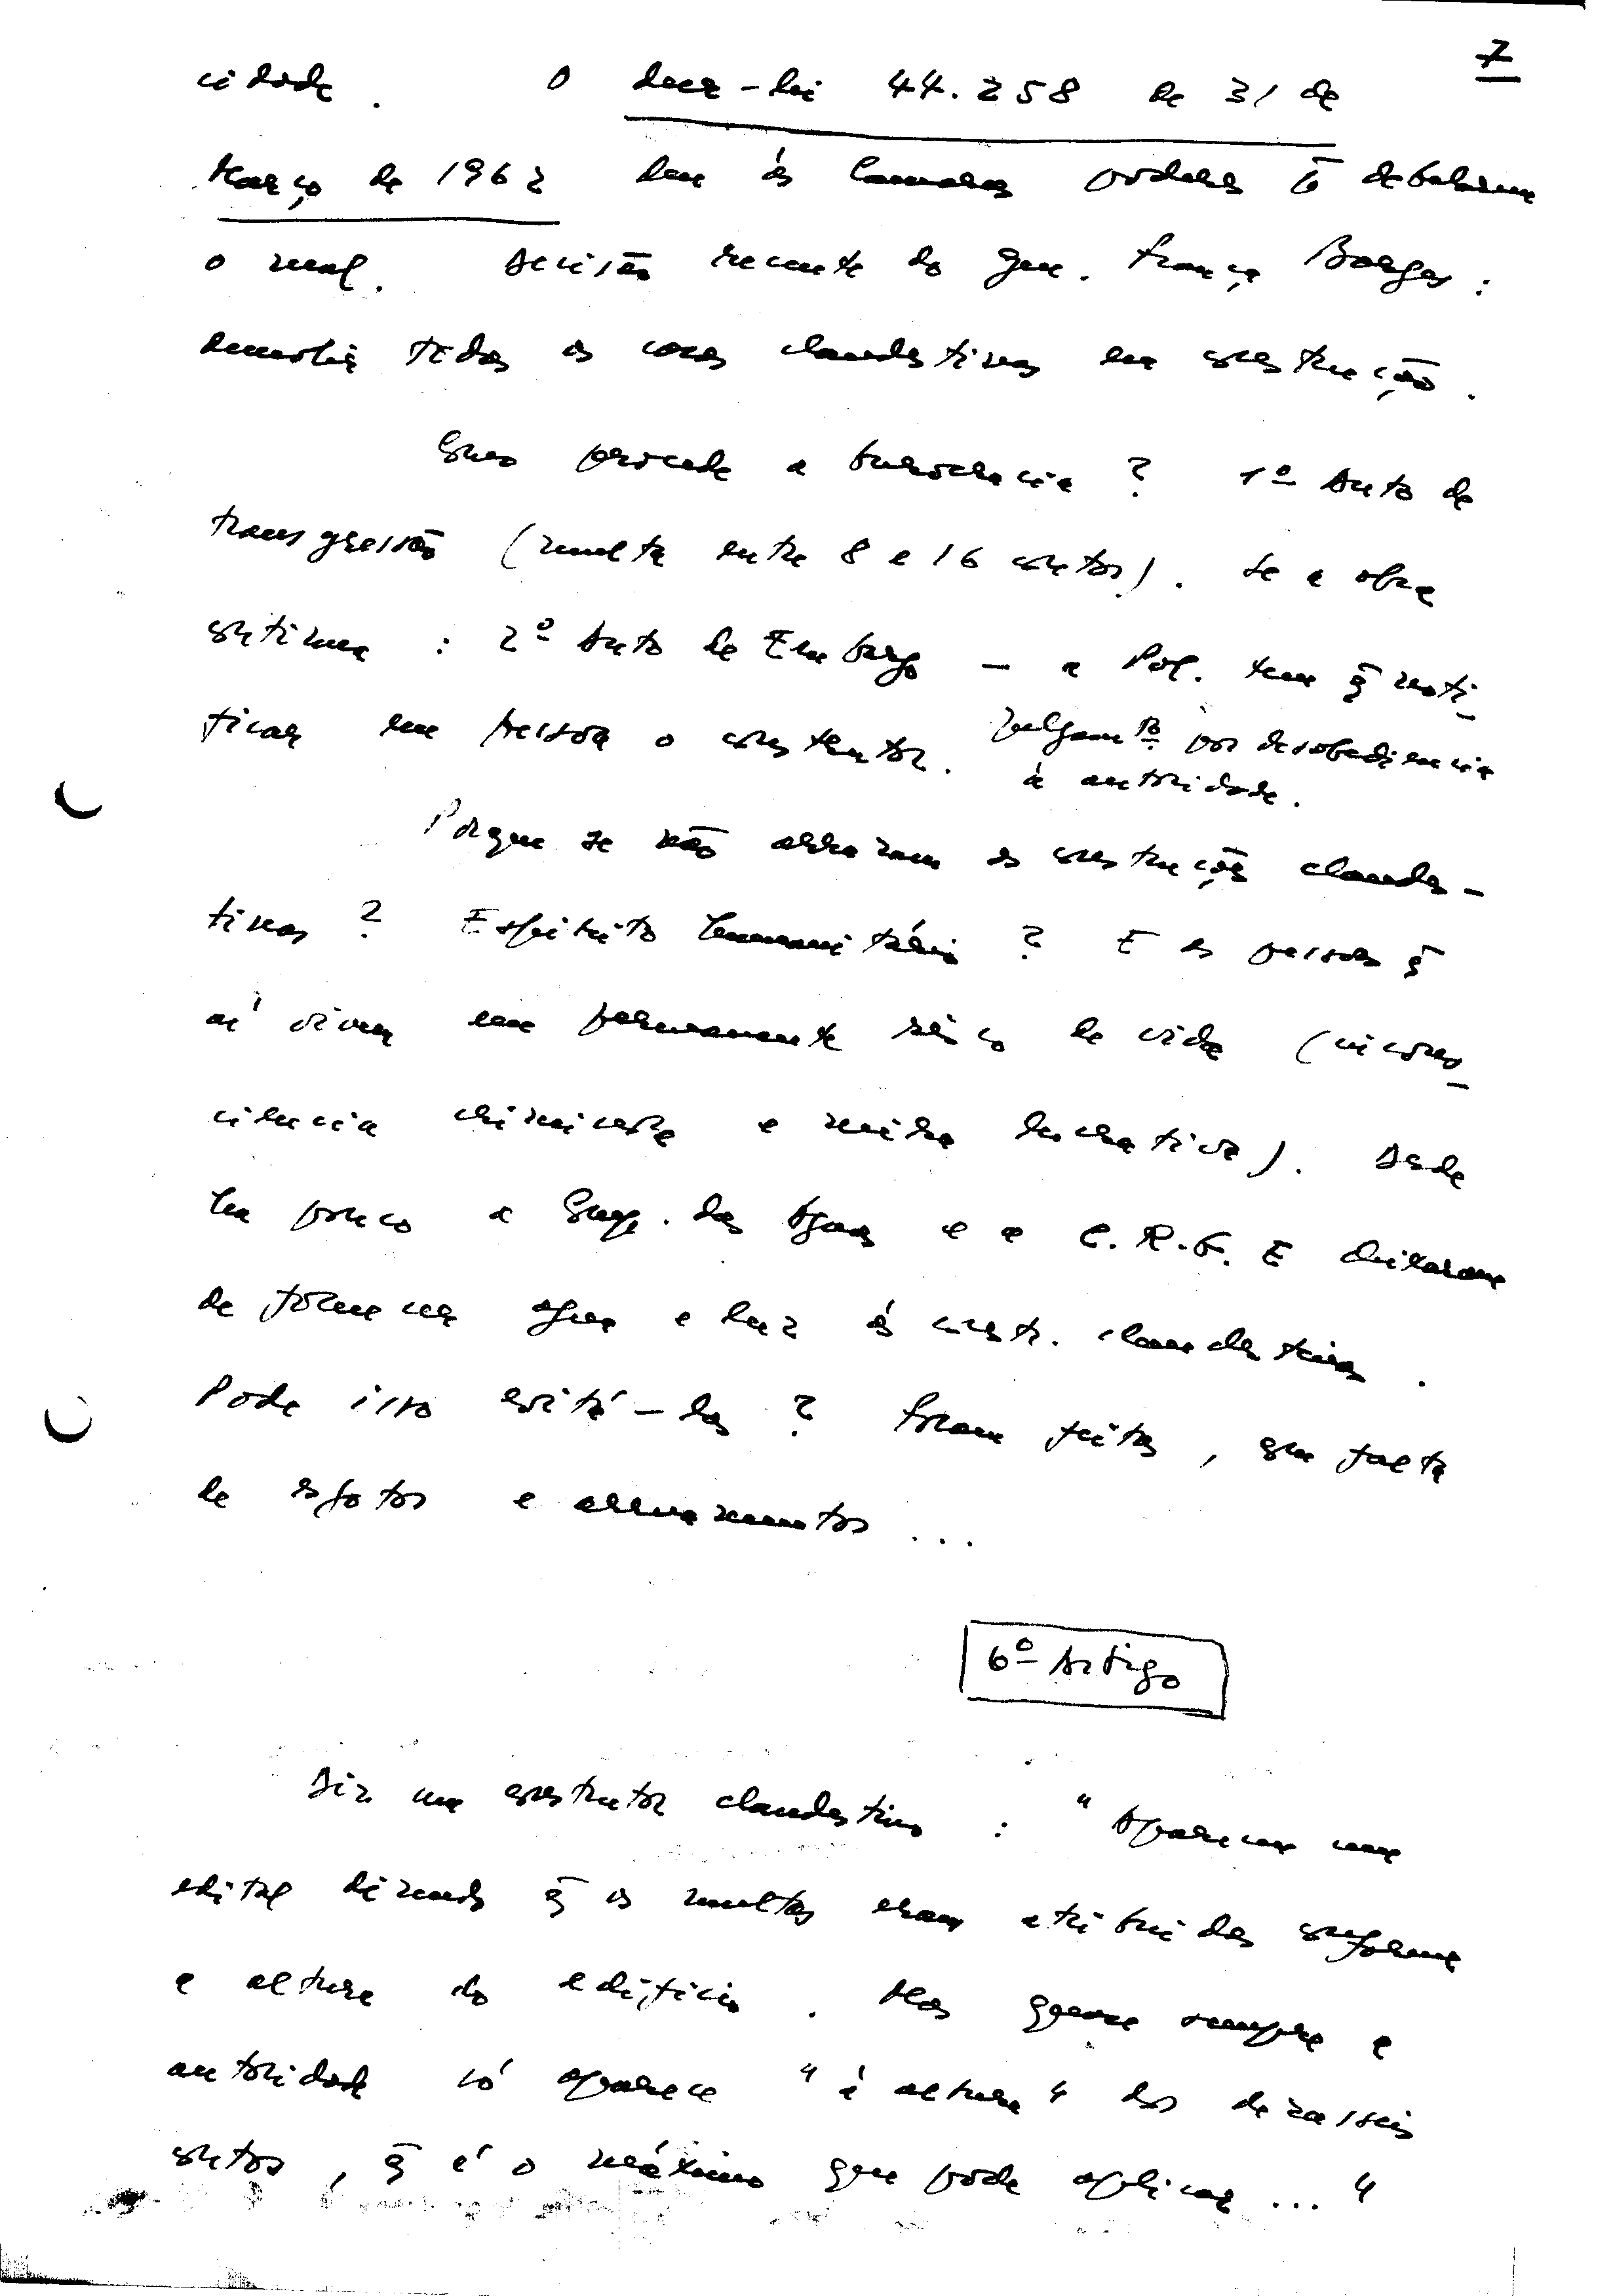 7
cidade. O decr-lei 44.258 de 31 de
Março de 1962 deu ás Camaras poderes p̄ debelarem
o mal. Decisão recente do gen. França Borges:
demolir todas as casas clandestinas em construção.
Como procede a burocracia? 1º Auto de
transgressão (multa entre 8 e 16 contos). Se a obra
continua: 2º Auto de Embargo — a Pol. tem q̄ noti-
ficar em pessoa o construtor. Julgamtº por desobediencia
à autoridade.
Porque se não arrazam as construções clandes-
tinas? Espirito humanitário? E as pessoas q̄
aí vivem em permanente risco de vida (incons-
ciencia criminosa e mira lucrativa). Desde
ha pouco a Comp. das Aguas e a C.R.G.E deixaram
de fornecer agua e luz ás const. clandestinas.
Pode isso evitá-las? Foram feitas, com falta
de esgotos e arruamentos ...
6º Artigo
Diz um construtor clandestino: "Apareceu um
edital dizendo q̄ as multas eram atribuidas conforme
a altura do edificio. Mas quase sempre a
autoridade só aparece "á altura" dos dezasseis
contos, q̄ é o máximo que pode aplicar ... "